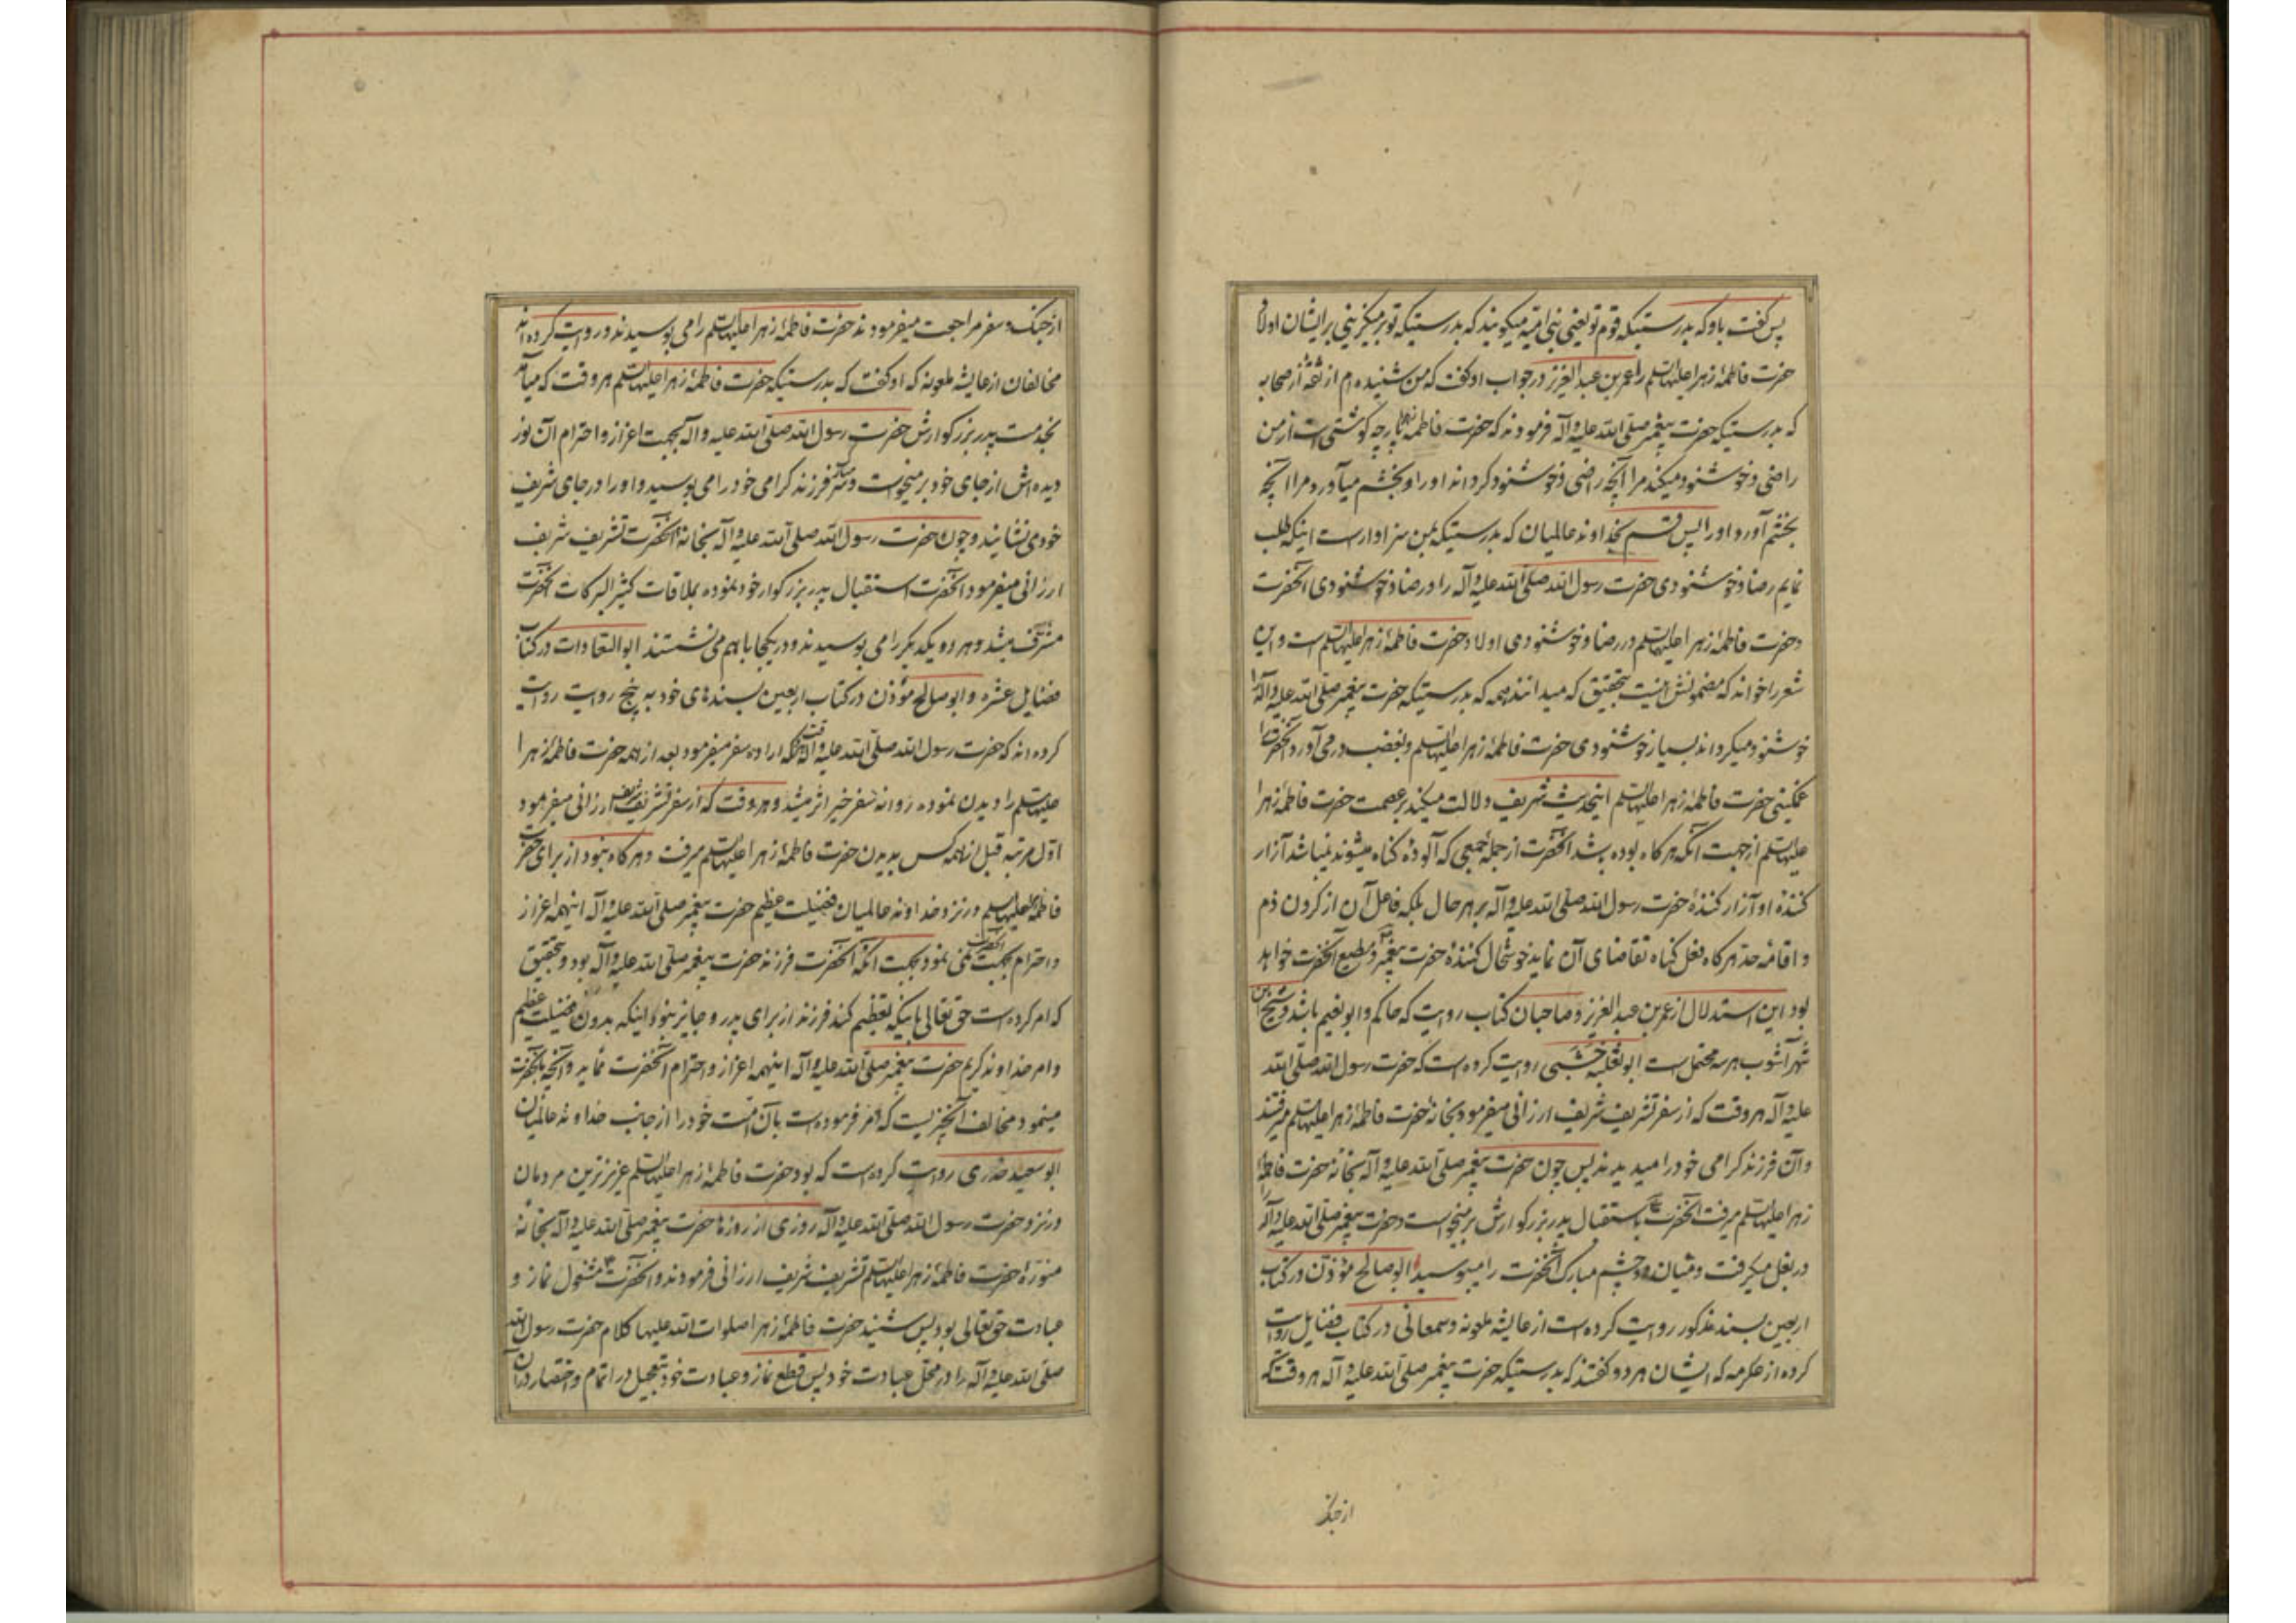 پس گفت باو که بدرستیکه قوم تو یعنی بنی امیه میگویند که بدرستیکه تو برمیگزینی بر ایشان اولاد
حضرت فاطمهٔ زهرا علیها السلم را عمر بن عبد العزیز در جواب او گفت که من شنیده‌ام از ثقهٔ از صحابه
که بدرستیکه حضرت پیغمبر صلی الله علیه و آله فرمودند که حضرت فاطمه زهرا پارچه گوشتی است از من
راضی و خوشنود میکند مرا آنچه راضی و خوشنود گرداند او را و بخشم میآورد مرا آنچه
بخشم آورد او را پس قسم بخداوند عالمیان که بدرستیکه بمن سزاوار است اینکه طلب
نمایم رضا و خوشنودی حضرت رسول الله صلی الله علیه و آله را و رضا و خوشنودی آنحضرت
و حضرت فاطمهٔ زهرا علیها السلم در رضا و خوشنودی اولاد حضرت فاطمهٔ زهرا علیها السلم است و این
شعر را خواند که مضمونش اینست بتحقیق که میدانند همه که بدرستیکه حضرت پیغمبر صلی الله علیه و آله را
خوشنود میگرداند بسیار خوشنودی حضرت فاطمهٔ زهرا علیها السلم و بغضب در می آورد آنحضرت را
غمگینی حضرت فاطمهٔ زهرا علیها السلم اینحدیث شریف دلالت میکند بر عصمت حضرت فاطمهٔ زهرا
علیها السلم از جهت آنکه هرگاه بوده باشد آنحضرت از جملهٔ جمعی که آلودهٔ گناه میشوند نمیباشد آزار
کنندهٔ او آزار کنندهٔ حضرت رسول الله صلی الله علیه و آله بر هر حال بلکه فاعل آن از کردن ذم
و اقامهٔ حد هرگاه فعل گناه تقاضای آن نماید خوشحال کنندهٔ حضرت پیغمبر و مطیع آنحضرت خواهد
بود این استدلال از عمر بن عبد العزیز و صاحبان کتاب روایت که حاکم و ابو نعیم باشد و شیخ ابن
شهر آشوب هر سه محتمل است ابو ثعلبه خشنی روایت کرده است که حضرت رسول الله صلی الله
علیه و آله هر وقت که از سفر تشریف شریف ارزانی میفرمود بخانهٔ حضرت فاطمهٔ زهرا علیها السلم میرفتند
و آن فرزند گرامی خود را میدیدند پس چون حضرت پیغمبر صلی الله علیه و آله بخانهٔ حضرت فاطمهٔ
زهرا علیها السلم میرفت آنحضرت باستقبال پدر بزرگوارش برمیخواست و حضرت پیغمبر صلی الله علیه و آله او را
در بغل میگرفت و میان دو چشم مبارک آنحضرت را میبوسید ابو صالح مؤذن در کتاب
اربعین بسند مذکور روایت کرده است از عایشه ملعونه و سمعانی در کتاب فضایل روایت
کرده از عکرمه که ایشان هر دو گفتند که بدرستیکه حضرت پیغمبر صلی الله علیه و آله هر وقت که
از جنک
از جنک و سفر مراجعت میفرمودند حضرت فاطمهٔ زهرا علیها السلم را می بوسیدند و روایت کرده‌اند
مخالفان از عایشه ملعونه که او گفت که بدرستیکه حضرت فاطمهٔ زهرا علیها السلم هر وقت که میآمد
بخدمت پدر بزرگوارش حضرت رسول الله صلی الله علیه و آله بجهت اعزاز و احترام آن نور
دیده‌اش از جای خود بر میخواست و سر فرزند گرامی خود را می بوسید و او را در جای شریف
خود می نشانید و چون حضرت رسول الله صلی الله علیه و آله بخانهٔ آنحضرت تشریف شریف
ارزانی میفرمود آنحضرت استقبال پدر بزرگوار خود نموده بملاقات کثیر البرکات آنحضرت
مشرف میشد و هر دو یکدیگر را می بوسیدند و در یکجا با هم می نشستند ابو السعادات در کتاب
فضایل عشره و ابو صالح مؤذن در کتاب اربعین بسندهای خود به پنج روایت روایت
کرده‌اند که حضرت رسول الله صلی الله علیه و آله هر وقت که ارادهٔ سفر میفرمود بعد از همه حضرت فاطمهٔ زهرا
علیها السلم را دیدن نموده روانهٔ سفر خیر اثر میشد و هر وقت که از سفر تشریف شریف ارزانی میفرمود
اول مرتبه قبل از همه کس بدیدن حضرت فاطمهٔ زهرا علیها السلم میرفت و هرگاه نبود از برای حضرت
فاطمه علیها السلم در نزد خداوند عالمیان فضیلت عظیم حضرت پیغمبر صلی الله علیه و آله اینهمه اعزاز
و احترام آنحضرت نمی نمود بجهت آنکه آنحضرت فرزند حضرت پیغمبر صلی الله علیه و آله بود و بتحقیق
که امر کرده است حق تعالی باینکه تعظیم کند فرزند از برای پدر و جایز نبود اینکه بدون فضیلت عظیم
و امر خداوند کریم حضرت پیغمبر صلی الله علیه و آله اینهمه اعزاز و احترام آنحضرت نماید و آنچه بآنحضرت
مینمود مخالف آنچیزیست که امر فرموده است بآن امت خود را از جانب خداوند عالمیان
ابو سعید خدری روایت کرده است که بود حضرت فاطمهٔ زهرا علیها السلم عزیزترین مردمان
در نزد حضرت رسول الله صلی الله علیه و آله روزی از روزها حضرت پیغمبر صلی الله علیه و آله بخانهٔ
منورهٔ حضرت فاطمهٔ زهرا علیها السلم تشریف شریف ارزانی فرمودند و آنحضرت مشغول نماز و
عبادت حق تعالی بود پس شنید حضرت فاطمهٔ زهرا صلوات الله علیها کلام حضرت رسول الله
صلی الله علیه و آله را در محل عبادت خود پس قطع نماز و عبادت خود بتعجیل در اتمام و اختصار در آن